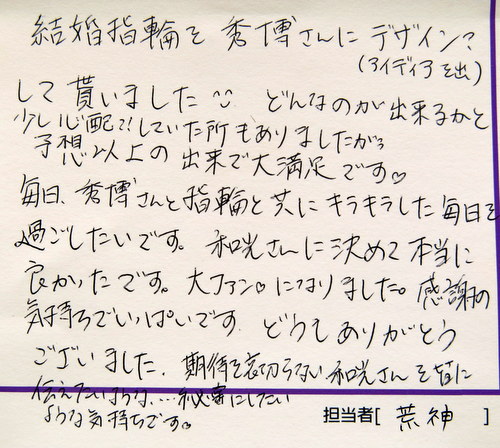 結婚指輪を秀博さんにデザイン?
(アイディアを出)
して貰いました どんなのが出来るかと
少し心配?!していた所もありましたが、
予想以上の出来で大満足です♡
毎日、秀博さんと指輪と共にキラキラした毎日を
過ごしたいです。和光さんに決めて本当に
良かったです。大ファン♡になりました。感謝の
気持ちでいっぱいです。どうもありがとう
ございました。期待を裏切らない和光さんを皆に
伝えたいような…秘密にしたい
ような気持ちです。
担当者[ 荒神 ]